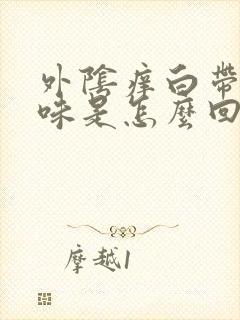 外陰痒白帶
味是怎麼回
摩越1